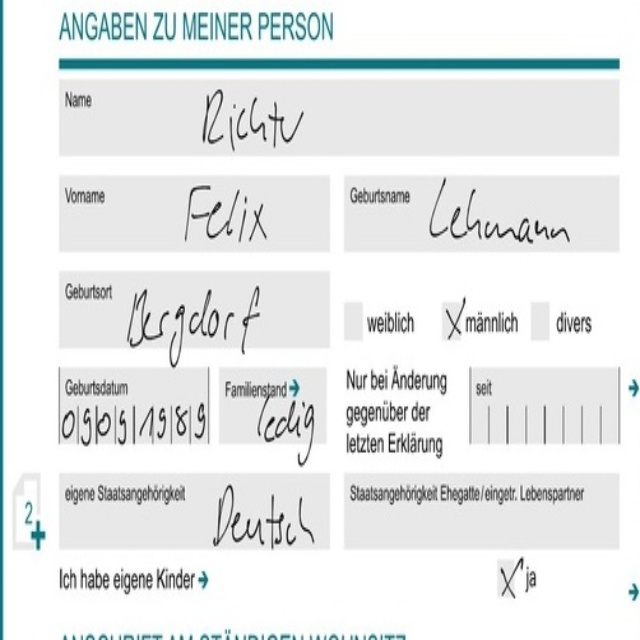 ANGABEN ZU MEINER PERSON
Name Richter
Vorname Felix Geburtsname Lehmann
Geburtsort Bergdorf
weiblich X männlich divers
Geburtsdatum 09091989 Familienstand ledig
Nur bei Änderung gegenüber der letzten Erklärung seit
eigene Staatsangehörigkeit Deutsch Staatsangehörigkeit Ehegatte/eingetr. Lebenspartner
2
Ich habe eigene Kinder X ja
ANSCHRIFT AM STÄNDIGEN WOHNSITZ